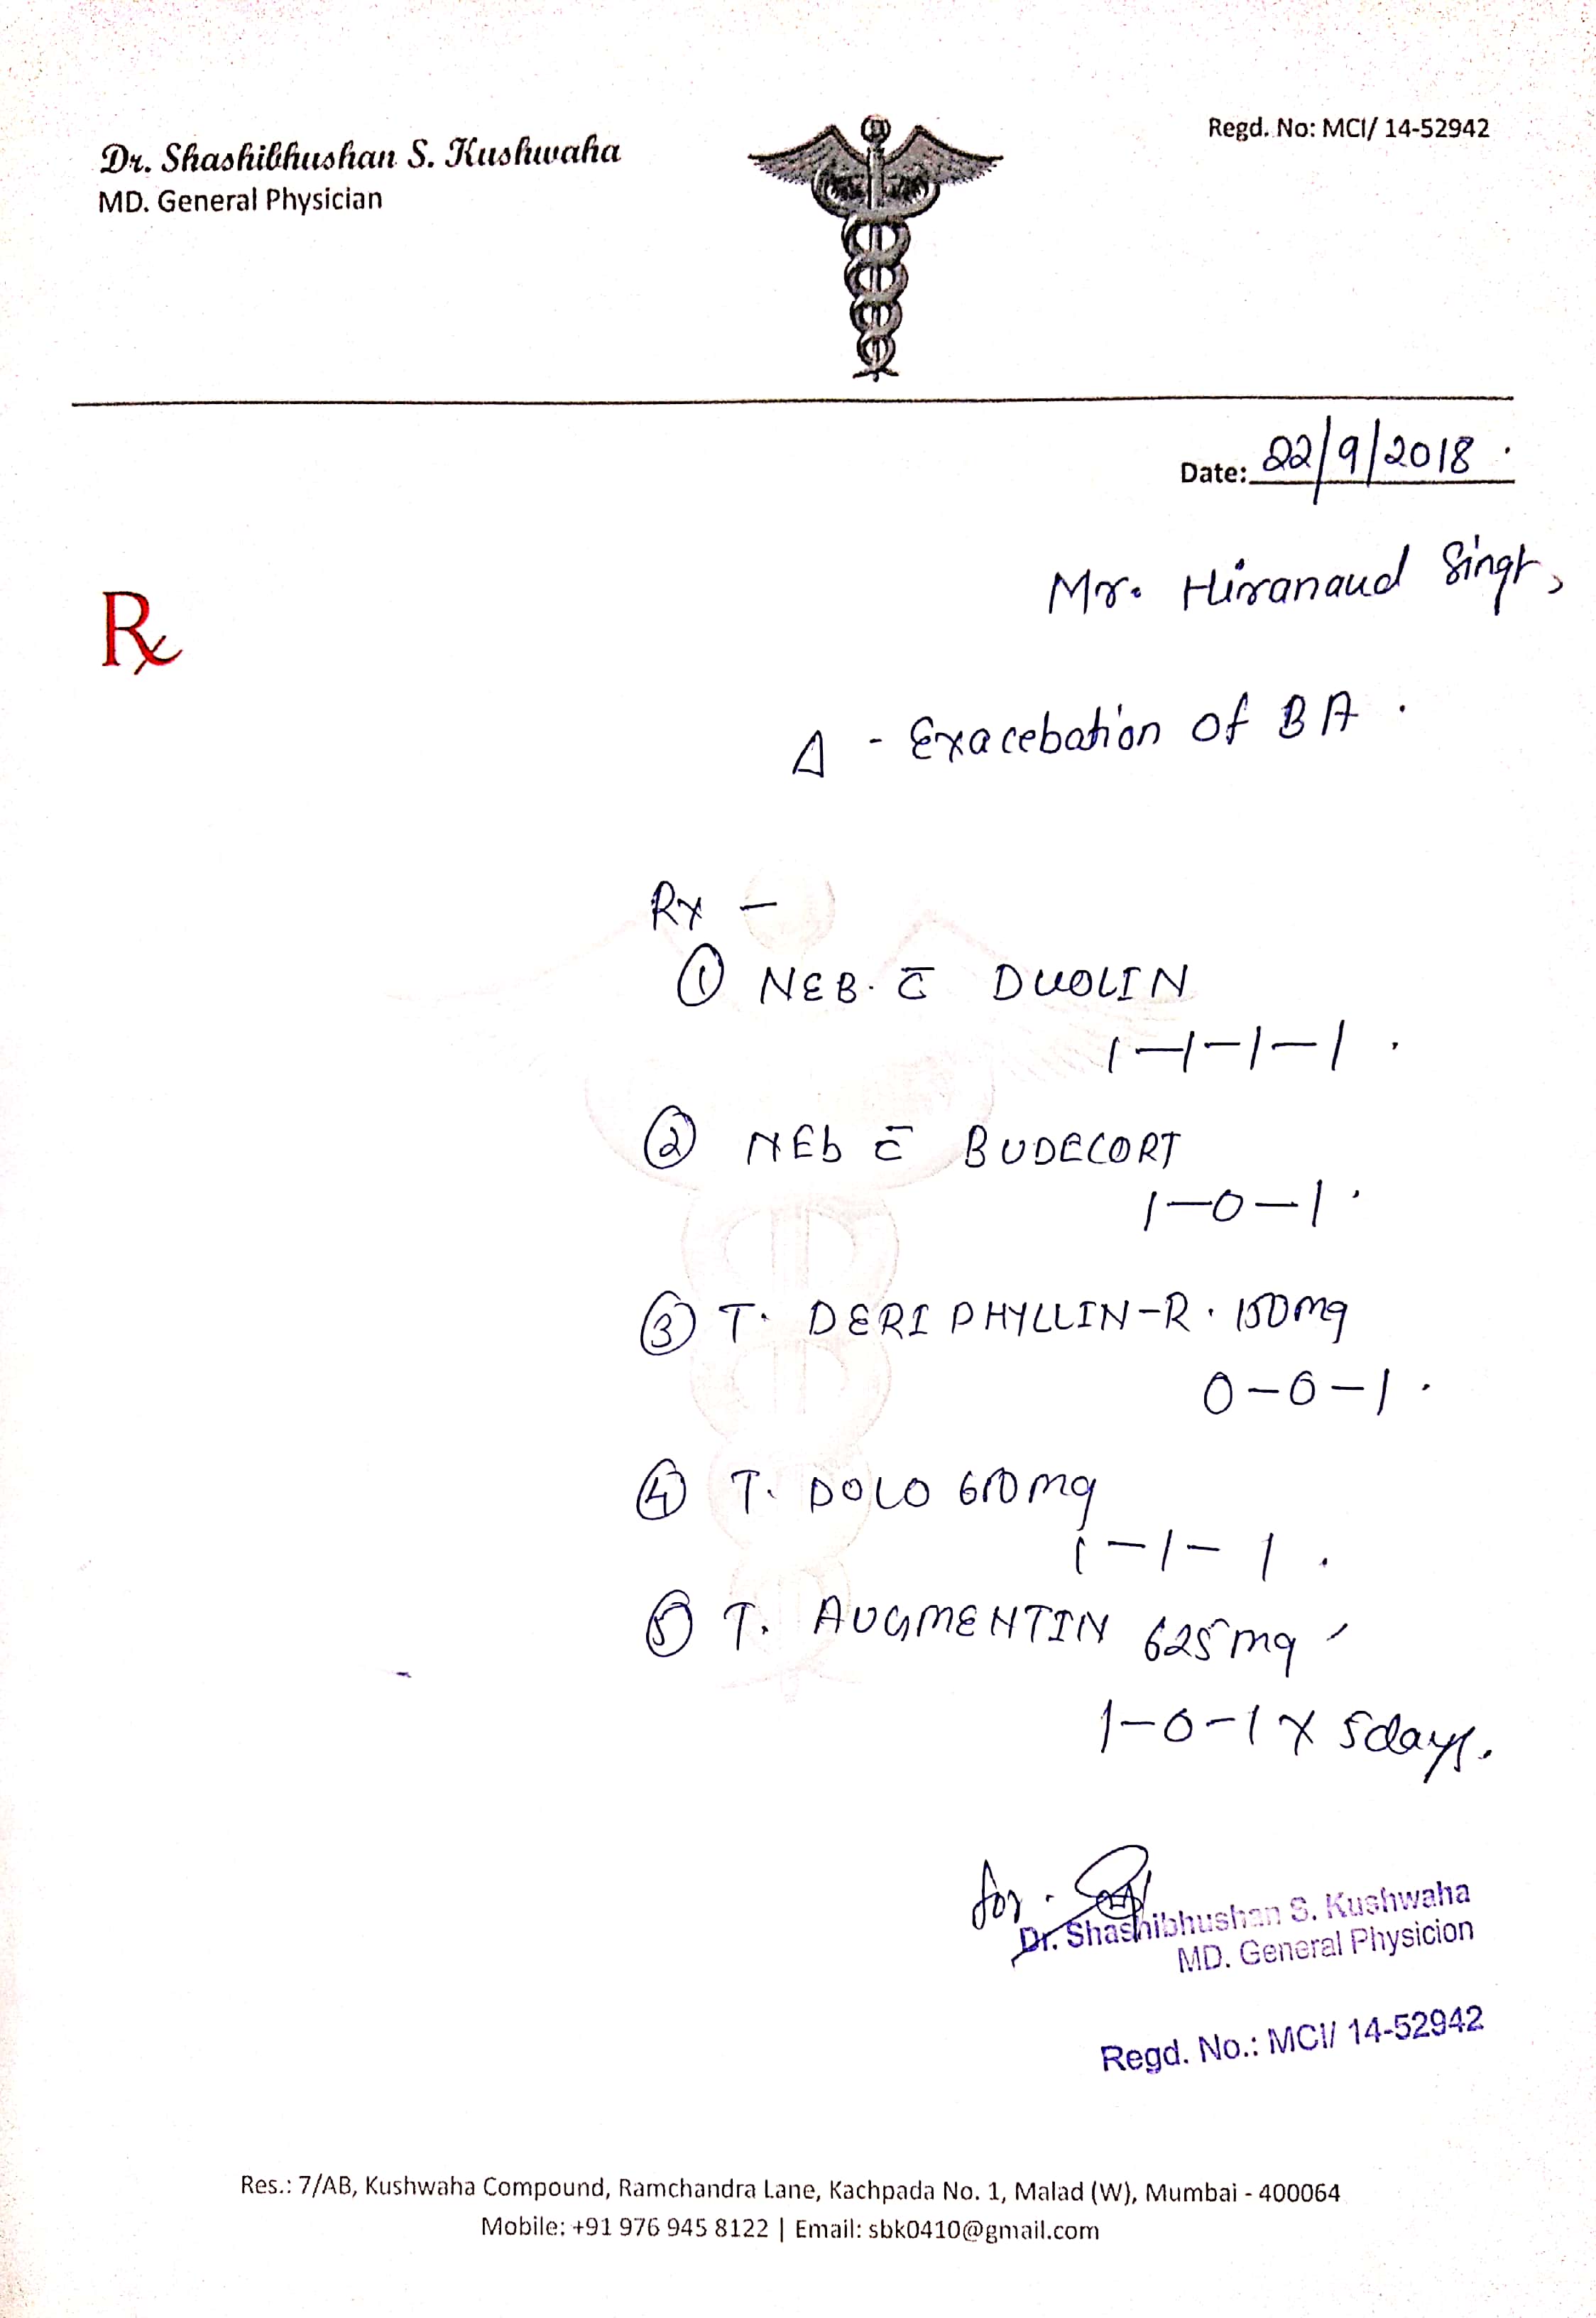 Dr. Shashibhushan S. Kushwaha
MD. General Physician
Regd. No: MCI/ 14-52942
Date: 22/9/2018.
Mr. Hiranand Singh,
Rx
Δ - Exacebation of BA.
Rx -
① NEB. c̄ DUOLIN
1-1-1-1.
② NEb c̄ BUDECORT
1-0-1.
③ T. DERIPHYLLIN-R. 150mg
0-0-1.
④ T. DOLO 650mg
1-1-1.
⑤ T. AUGMENTIN 625mg
1-0-1 x 5days.
for.
Dr. Shashibhushan S. Kushwaha
MD. General Physicion
Regd. No.: MCI/ 14-52942
Res.: 7/AB, Kushwaha Compound, Ramchandra Lane, Kachpada No. 1, Malad (W), Mumbai - 400064
Mobile: +91 976 945 8122 | Email: sbk0410@gmail.com